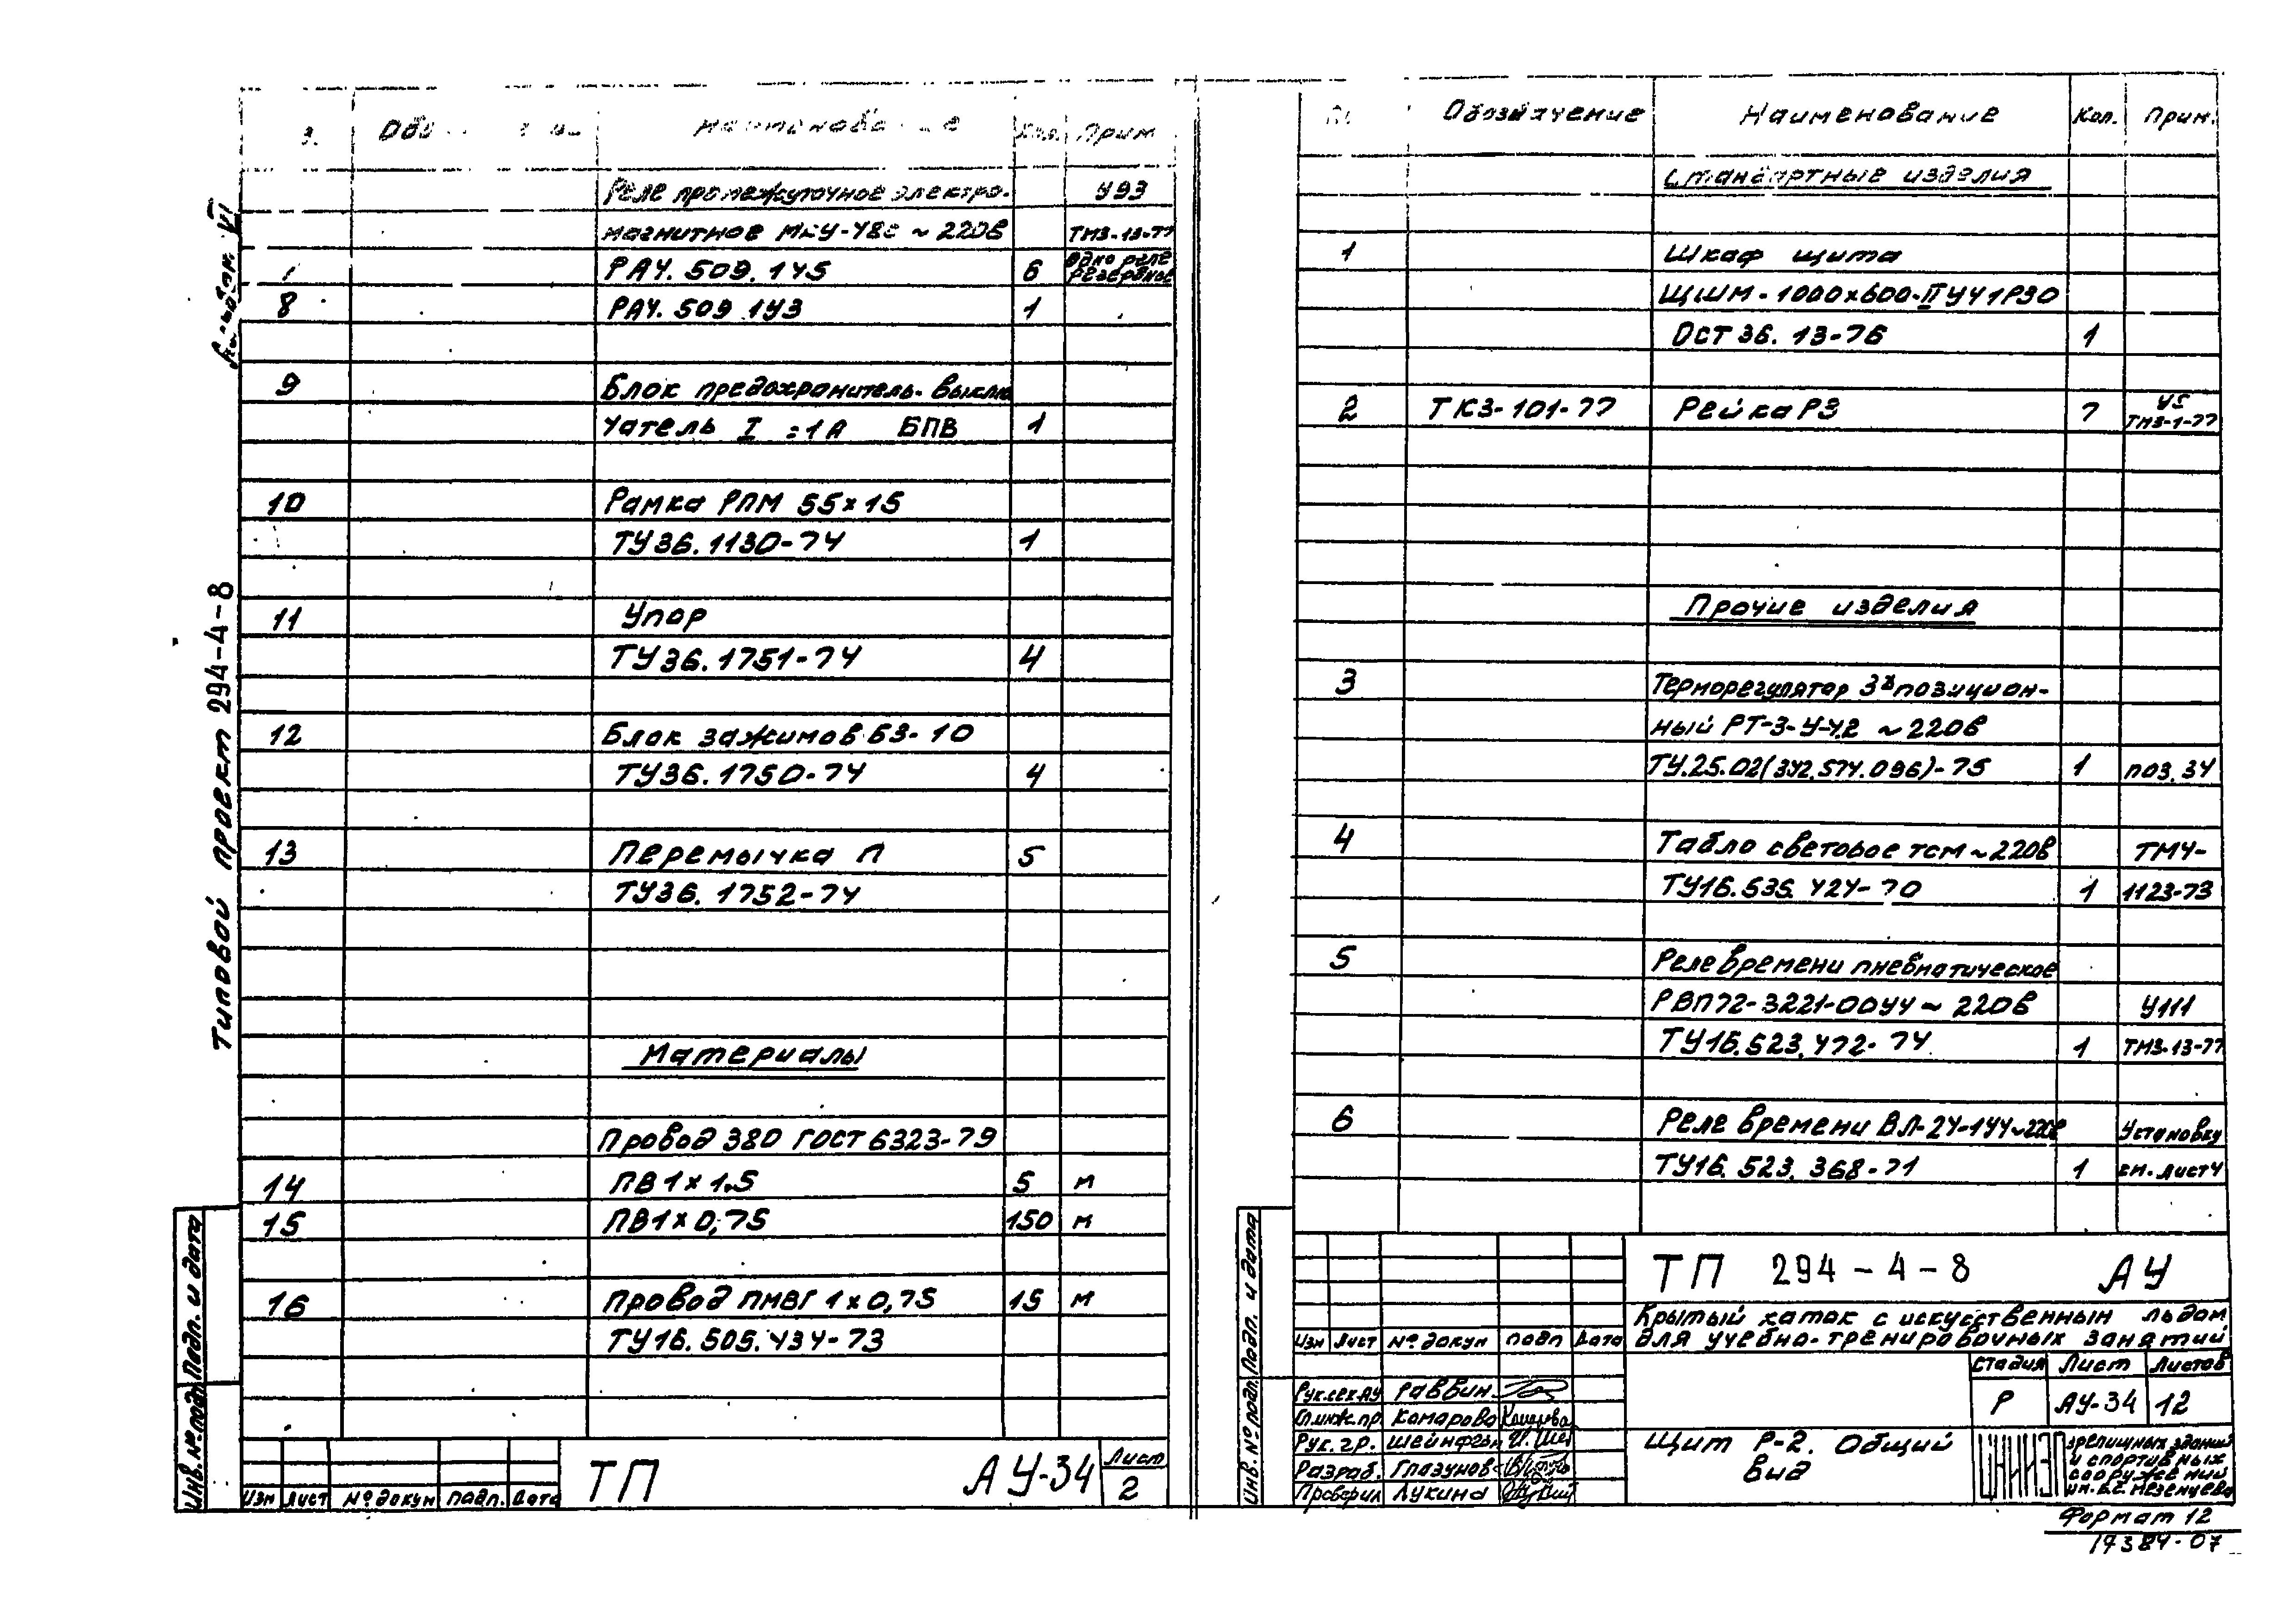 Типовой проект 294-4-8
Кол. Прим
Реле промежуточное электро- У93
магнитное МКУ-48с ~ 220в ТМ3-13-77
РА4.509.145 6 одно реле резервное
8 РА4.509.143 1
9 Блок предохранитель-выклю
чатель I =1А БПВ 1
10 Рамка РПМ 55х15
ТУ36.1130-74 1
11 Упор
ТУ36.1751-74 4
12 Блок зажимов БЗ-10
ТУ36.1750-74 4
13 Перемычка П 5
ТУ36.1752-74
Материалы
Провод 380 ГОСТ 6323-79
14 ПВ 1х1,5 5 м
15 ПВ1х0,75 150 м
16 Провод ПМВГ 1х0,75 15 м
ТУ16.505.434-73
Инв. № подл. Подп. и дата
Изм Лист № докум подп. Дата
ТП АУ-34
Лист
2
Обозначение Наименование Кол. Прим.
Стандартные изделия
1 Шкаф щита
ЩШМ-1000х600-IIУ41Р30
ОСТ 36.13-76 1
2 ТК3-101-77 Рейка Р3 7 У5 ТМ3-1-77
Прочие изделия
3 Терморегулятор 3х позицион-
ный РТ-3-У-4.2 ~220в
ТУ.25.02(3У2.574.096)-75 1 поз.34
4 Табло световое тсм ~220в ТМ4-
ТУ16.535.424-70 1 1123-73
5 Реле времени пневматическое
РВП72-3221-00У4 ~ 220в У111
ТУ16.523.472-74 1 ТМ3-13-77
6 Реле времени ВЛ-24-1У4~220в Установку
ТУ16.523.368-71 1 см. лист 4
Инв. № подл. Подп. и дата
ТП 294-4-8 АУ
Крытый каток с искусственным льдом
для учебно-тренировочных занятий
Изм Лист № докум подп Дата
Стадия Лист Листов
Р АУ-34 12
Рук.сек.АУ Раввин
Гл.инж.пр. Комарова
Рук. гр. Шейнфган
Разраб. Глазунов
Проверил Лукина
Щит Р-2. Общий
вид
зрелищных зданий
и спортивных
сооружений
им. Б.С. Мезенцева
Формат 12
17384-07